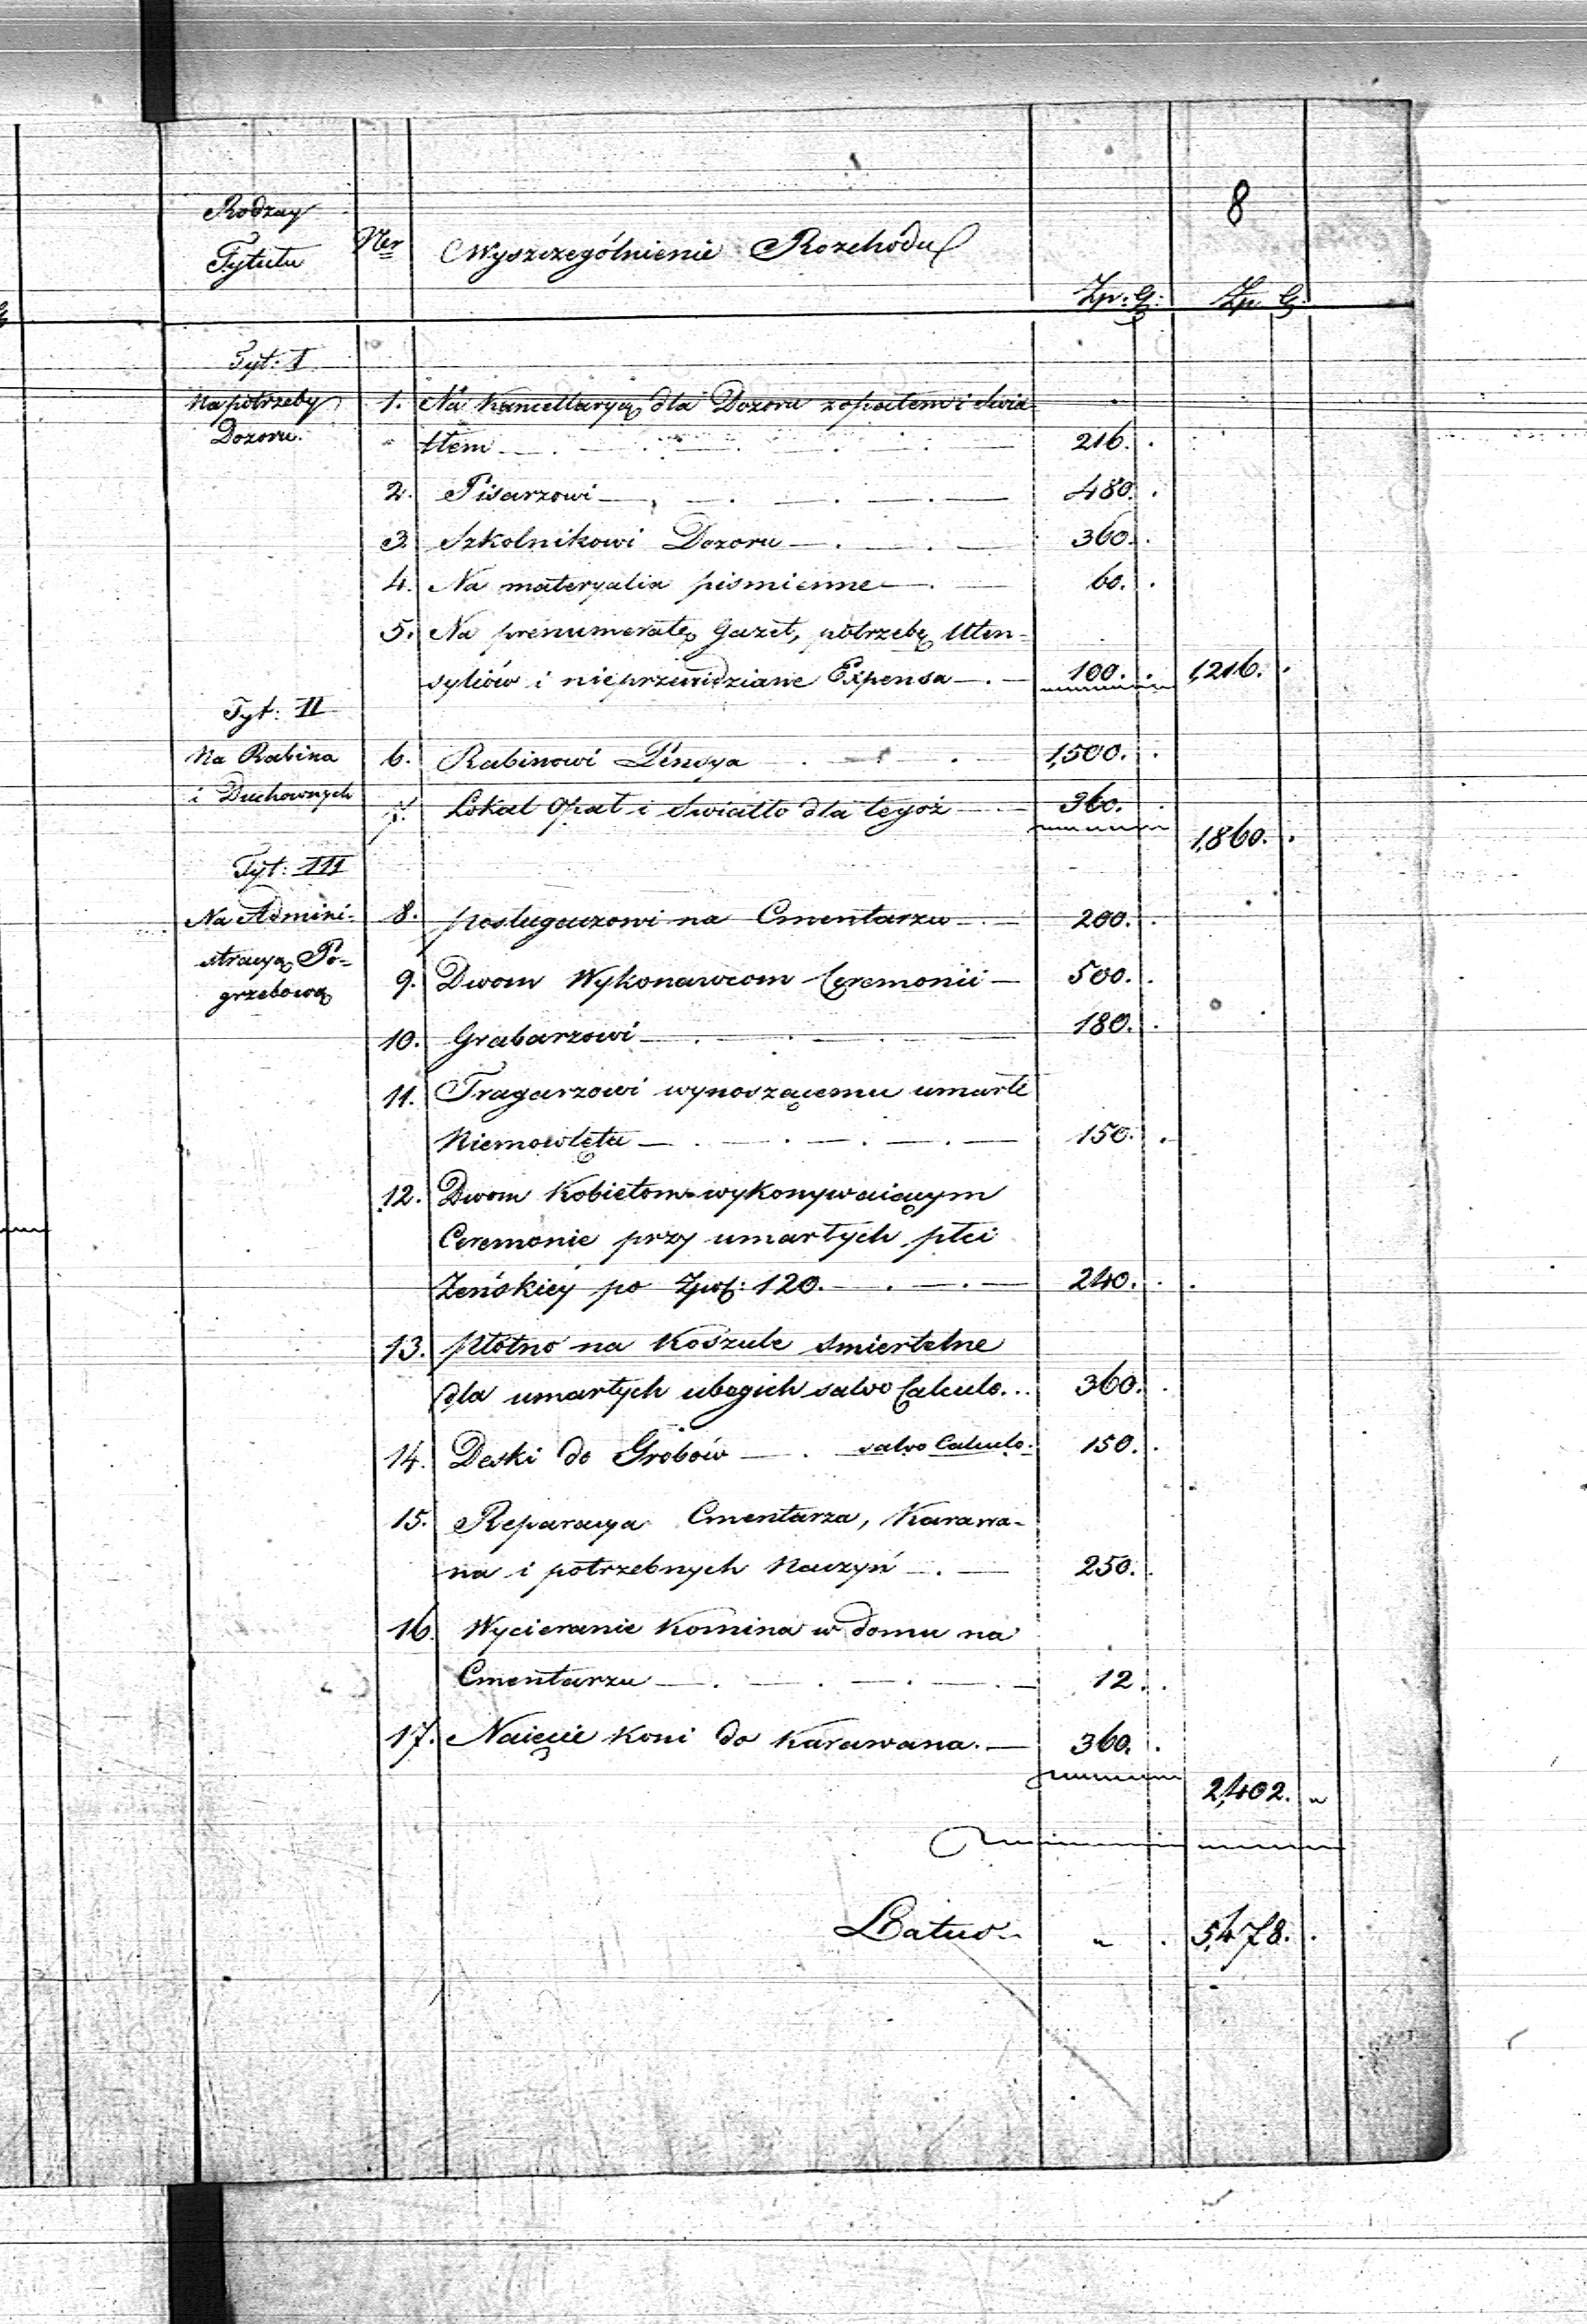 8
Rodzay Tytułu Ner Wyszczególnienie Rozchodu Zp: G: Zp G:
Tyt: I
Na potrzeby 1. Na Kancellaryą dla Dozoru z opałem i świa-
Dozoru. tłem 216.
2. Pisarzowi 480.
3. Szkolnikowi Dozoru 360.
4. Na materyalia piśmienne 60.
5. Na prenumeratę gazet, potrzebę Uten-
syliów i nieprzewidziane Expensa 100. 1,216.
Tyt: II
Na Rabina 6. Rabinowi Pensya 1,500.
i Duchownych 7. Lokal Opał i Swiatło dla tegoż 360.
1,860.
Tyt: III
Na Admini- 8. posługaczowi na Cmentarzu 200.
stracyą Po- 9. Dwom Wykonawcom Ceremonii 500.
grzebową
10. Grabarzowi 180.
11. Tragarzowi wynoszącemu umarłe
Niemowlęta 150.
12. Dwom Kobietom wykonywaiącym
Ceremonie przy umarłych płci
Żeńskiey po Zpol: 120. 240.
13. płótno na Koszule smiertelne
dla umarłych ubogich salvo Calculo... 360.
14. Deski do Grobów salvo Calculo. 150.
15. Reparacya Cmentarza, Karawa-
na i potrzebnych Naczyń 250.
16. Wycieranie Komina w domu na
Cmentarzu 12.
17. Naięcie Koni do Karawana. 360.
2,402. "
Latus " 5,478.